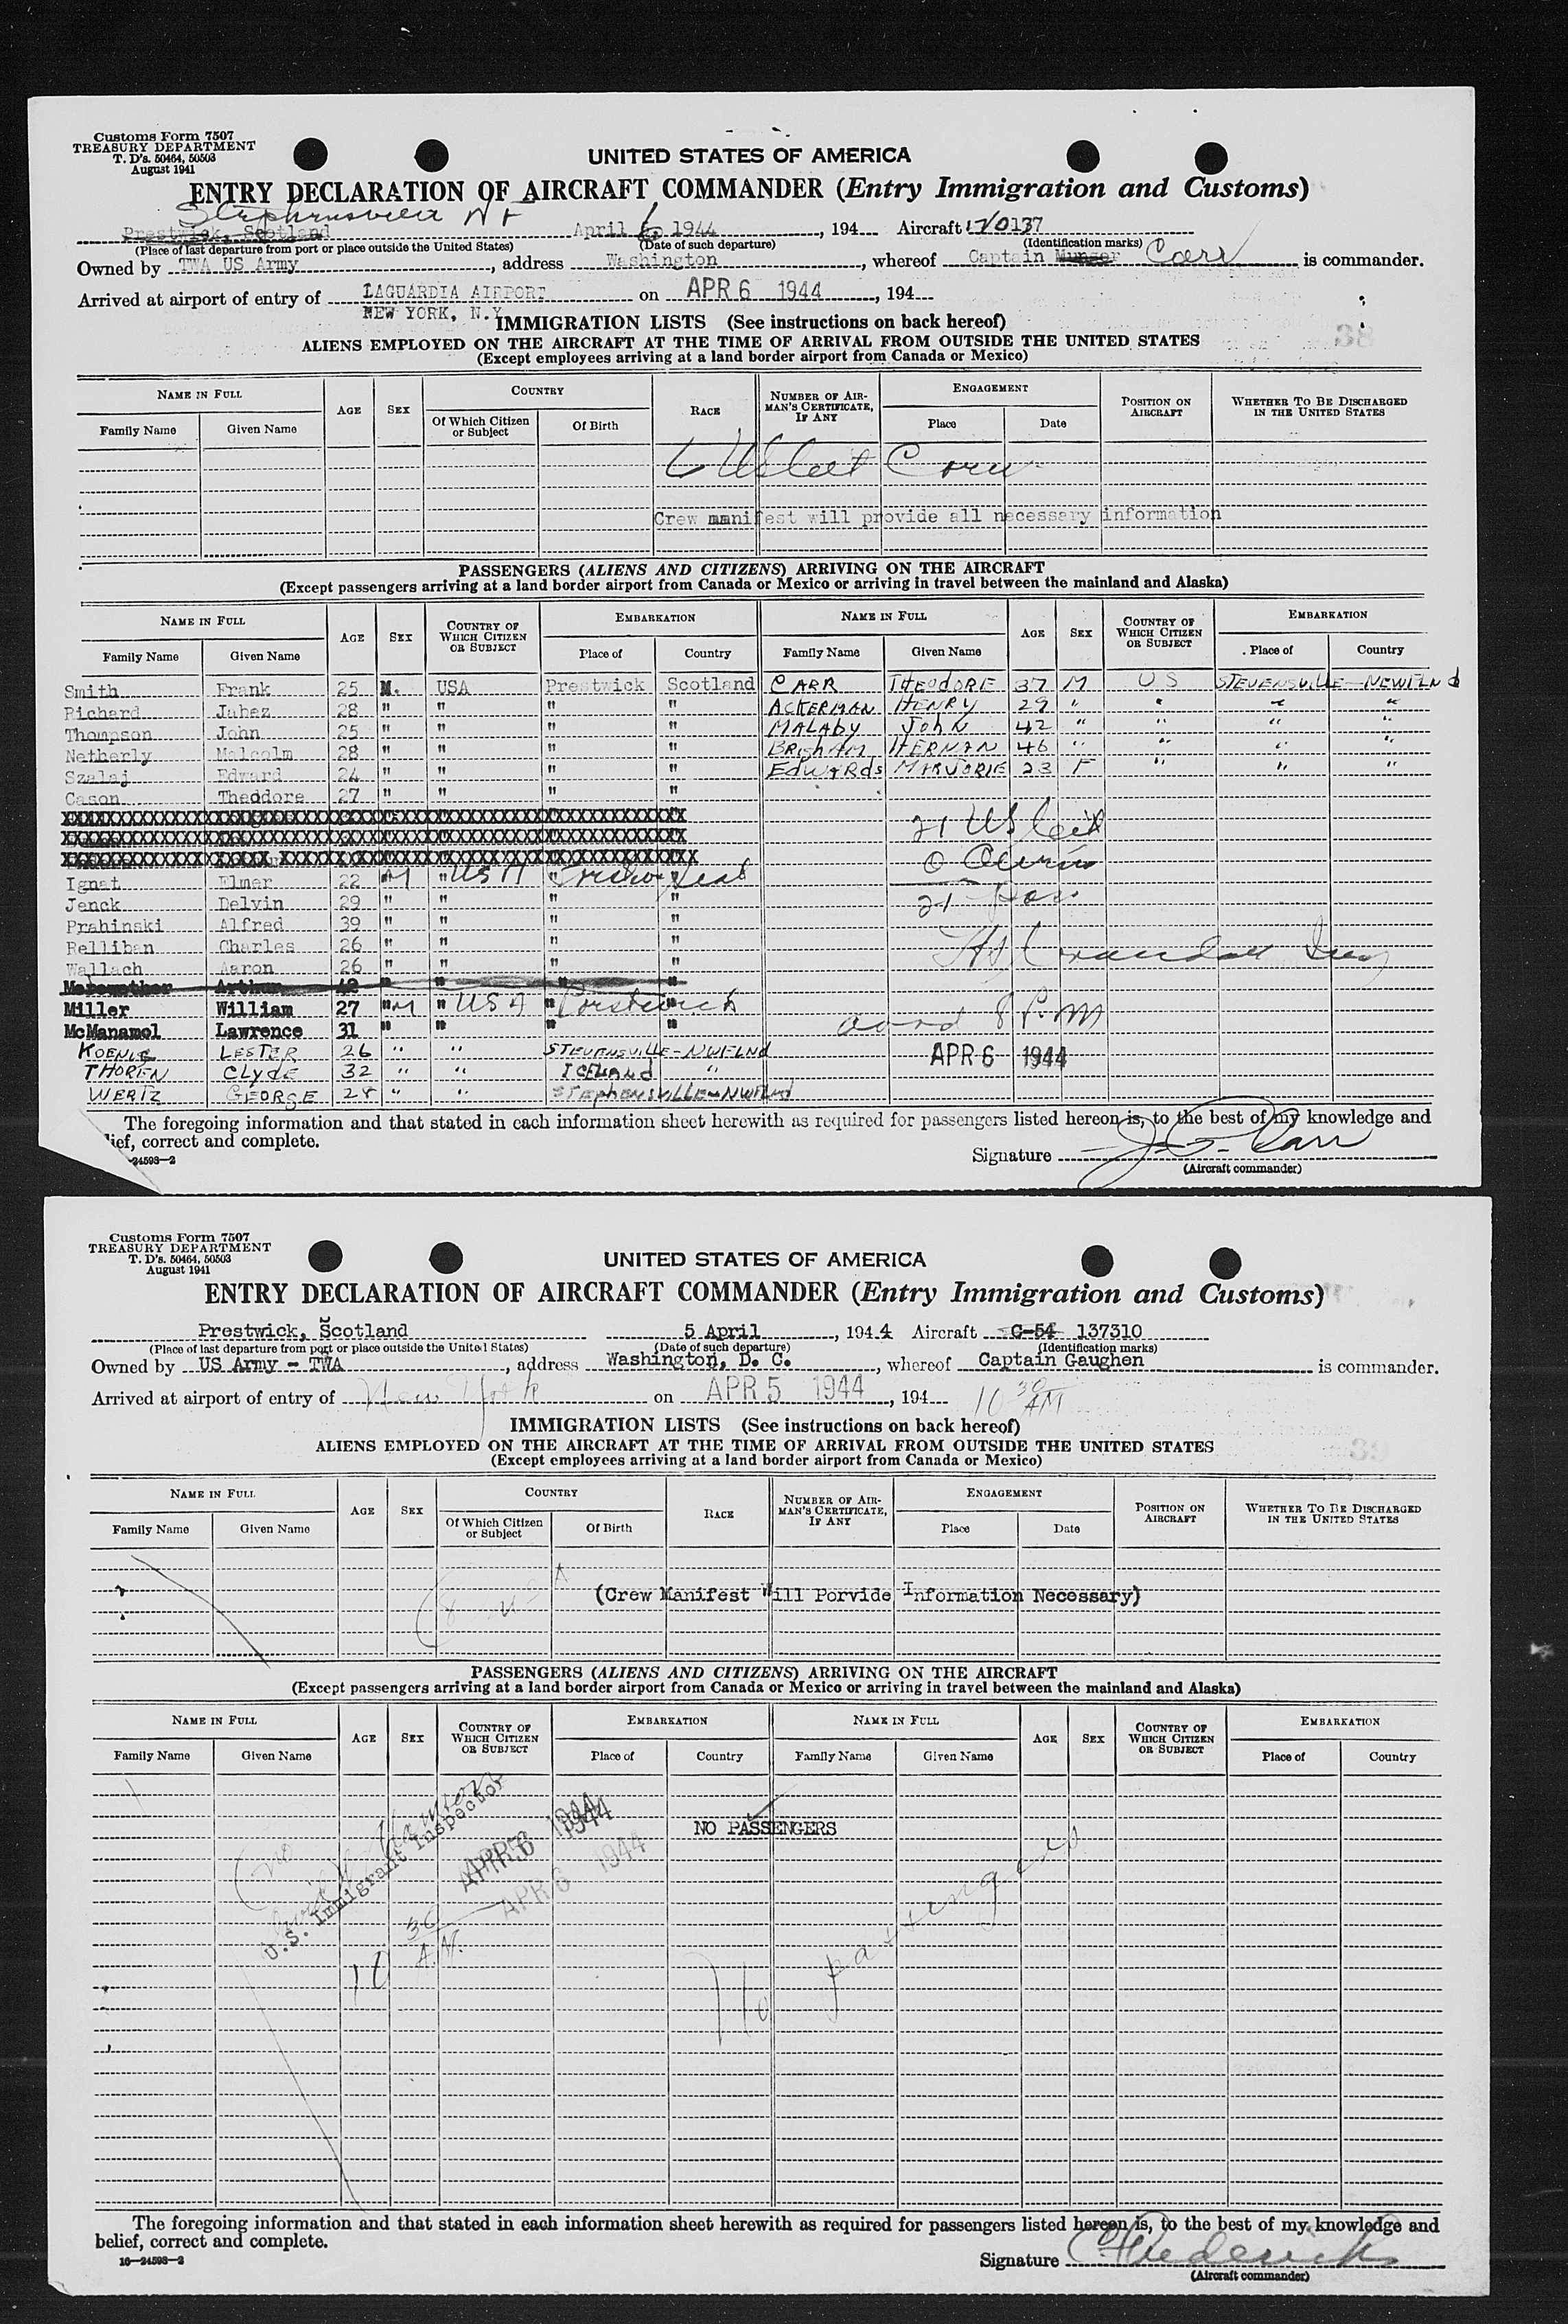 Customs Form 7507
TREASURY DEPARTMENT
T. D's. 50464, 50503
August 1941
UNITED STATES OF AMERICA
ENTRY DECLARATION OF AIRCRAFT COMMANDER (Entry Immigration and Customs)
Prestwick, Scotland April 6 1944, 194 Aircraft
(Place of last departure from port or place outside the United States) (Date of such departure) (Identification marks)
Owned by TWA US Army, address Washington, whereof Captain Munger Carr is commander.
Arrived at airport of entry of LAGUARDIA AIRPORT on APR 6 1944, 194
NEW YORK, N.Y.
IMMIGRATION LISTS (See instructions on back hereof)
ALIENS EMPLOYED ON THE AIRCRAFT AT THE TIME OF ARRIVAL FROM OUTSIDE THE UNITED STATES
(Except employees arriving at a land border airport from Canada or Mexico)
NAME IN FULL AGE SEX COUNTRY RACE NUMBER OF AIRMAN'S CERTIFICATE, IF ANY ENGAGEMENT POSITION ON AIRCRAFT WHETHER TO BE DISCHARGED IN THE UNITED STATES
Family Name Given Name Of Which Citizen or Subject Of Birth Place Date
Crew manifest will provide all necessary information
PASSENGERS (ALIENS AND CITIZENS) ARRIVING ON THE AIRCRAFT
(Except passengers arriving at a land border airport from Canada or Mexico or arriving in travel between the mainland and Alaska)
NAME IN FULL AGE SEX COUNTRY OF WHICH CITIZEN OR SUBJECT EMBARKATION NAME IN FULL AGE SEX COUNTRY OF WHICH CITIZEN OR SUBJECT EMBARKATION
Family Name Given Name Place of Country Family Name Given Name Place of Country
Smith Frank 25 M. USA Prestwick Scotland CARR THEODORE 37 M US STEVENSVILLE-NEWFLND
Richard Jabez 28 " " " " ACKERMAN HENRY 29 " " " "
Thompson John 25 " " " " MALABY JOHN 42 " " " "
Netherly Malcolm 28 " " " " BRIGHAM HERMAN 46 " " " "
Szalaj Edward 24 " " " " EDWARDS MARJORIE 23 F " " "
Cason Theodore 27 " " " "
21 US
0
Ignat Elmer 22 M USA
Jenck Delvin 29 " " " " 21
Prahinski Alfred 39 " " " "
Relliban Charles 26 " " " "
Wallach Aaron 26 " " " "
Merewether Arthur 42 " " " "
Miller William 27 M USA Prestwick "
McManamol Lawrence 31 " " " " 8 P.M
KOENIG LESTER 26 " " STEVENSVILLE-NWFLND APR 6 1944
THOREN CLYDE 32 " " ICELAND "
WERTZ GEORGE 28 " " STEPHENSVILLE-NWFLND
The foregoing information and that stated in each information sheet herewith as required for passengers listed hereon is, to the best of my knowledge and
lief, correct and complete.
-24593-2
Signature
(Aircraft commander)
Customs Form 7507
TREASURY DEPARTMENT
T. D's. 50464, 50503
August 1941
UNITED STATES OF AMERICA
ENTRY DECLARATION OF AIRCRAFT COMMANDER (Entry Immigration and Customs)
Prestwick, Scotland 5 April, 1944 Aircraft C-54 137310
(Place of last departure from port or place outside the United States) (Date of such departure) (Identification marks)
Owned by US Army - TWA, address Washington, D. C., whereof Captain Gaughen is commander.
Arrived at airport of entry of New York on APR 5 1944, 194 10 30 AM
IMMIGRATION LISTS (See instructions on back hereof)
ALIENS EMPLOYED ON THE AIRCRAFT AT THE TIME OF ARRIVAL FROM OUTSIDE THE UNITED STATES
(Except employees arriving at a land border airport from Canada or Mexico)
NAME IN FULL AGE SEX COUNTRY RACE NUMBER OF AIRMAN'S CERTIFICATE, IF ANY ENGAGEMENT POSITION ON AIRCRAFT WHETHER TO BE DISCHARGED IN THE UNITED STATES
Family Name Given Name Of Which Citizen or Subject Of Birth Place Date
(Crew Manifest Will Porvide Information Necessary)
PASSENGERS (ALIENS AND CITIZENS) ARRIVING ON THE AIRCRAFT
(Except passengers arriving at a land border airport from Canada or Mexico or arriving in travel between the mainland and Alaska)
NAME IN FULL AGE SEX COUNTRY OF WHICH CITIZEN OR SUBJECT EMBARKATION NAME IN FULL AGE SEX COUNTRY OF WHICH CITIZEN OR SUBJECT EMBARKATION
Family Name Given Name Place of Country Family Name Given Name Place of Country
NO PASSENGERS
U.S. Immigrant Inspector
APR 6 1944
APR 6 1944
10 30 A.M.
No passengers
The foregoing information and that stated in each information sheet herewith as required for passengers listed hereon is, to the best of my knowledge and
belief, correct and complete.
16-24593-2
Signature
(Aircraft commander)